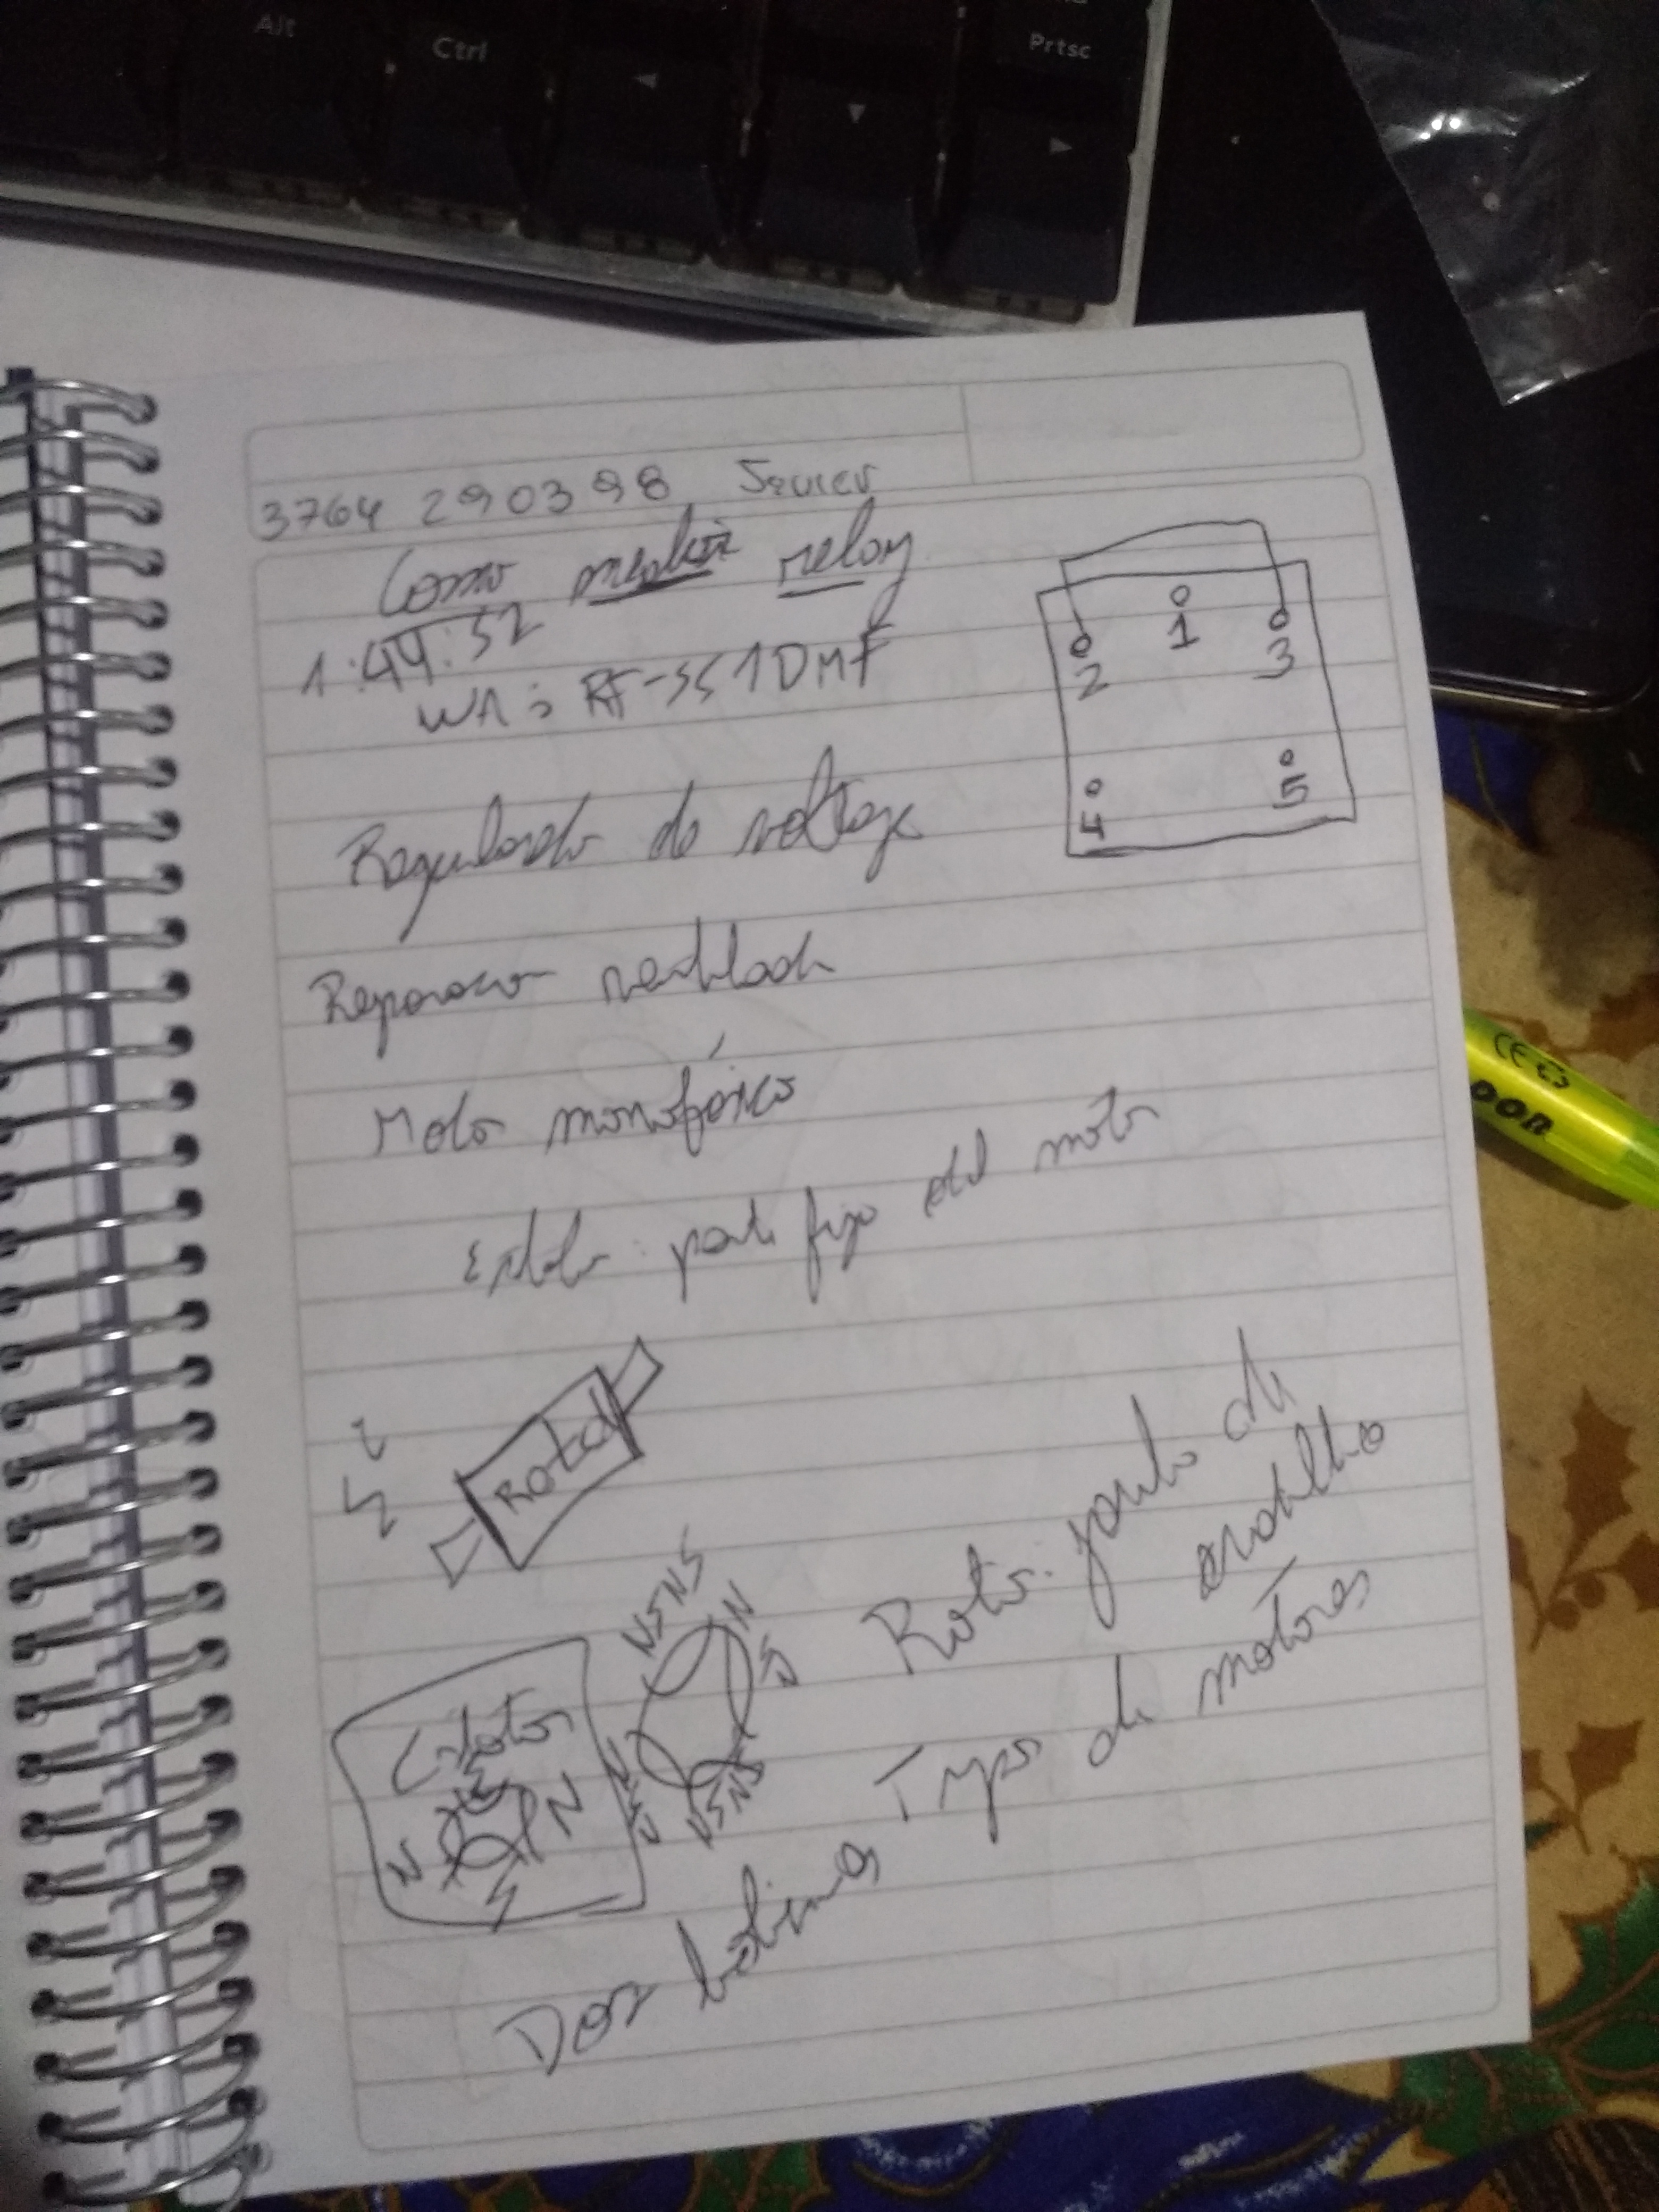 Alt
Ctrl
Prtsc
3764 290398 Javier
Como medir relay
1:44:52
WA: RF-SS1DMF
1
2
3
4
5
Regulador de voltage
Reparacion ventilador
Motor monofásico
Estator: parte fija del motor
Rotor
NSNS
N
S
Rotor: jaula de
ardilla
Estator
N
N
S
NSNS
Tipos de motores
Dos bobinas
CE